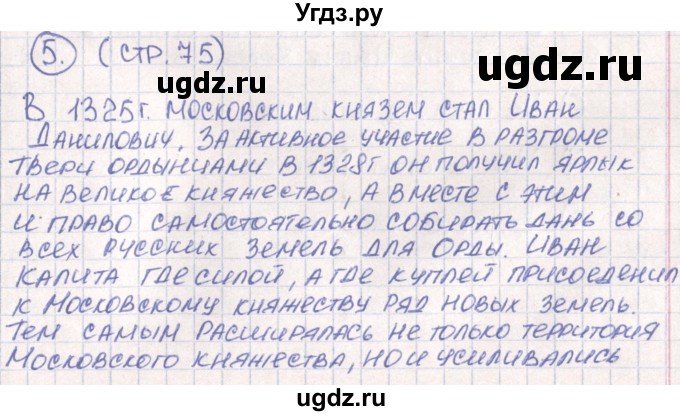 Угдз.ру
5. (стр. 75)
ugdz.ru
ugdz.ru
В 1325г. московским князем стал Иван
Данилович. За активное участие в разгроме
Твери ордынцами в 1328г он получил ярлык
на великое княжество, а вместе с этим
и право самостоятельно собирать дань со
всех русских земель для Орды. Иван
Калита где силой, а где куплей присоеденил
к Московскому княжеству ряд новых земель.
Тем самым расширялась не только территория
Московского княжества, но и усиливались
ugdz.ru
ugdz.ru